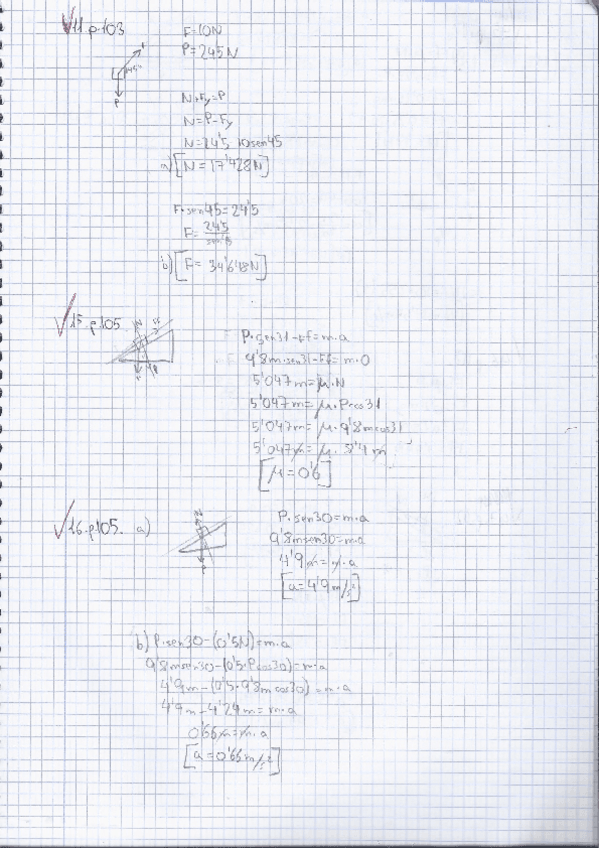 11.p.103
F=10N
P=24'5N
45º
P
N+Fy=P
N=P-Fy
N=24'5 10sen45
a) [N=17'428N]
F·sen45=24'5
F= 24'5
sen45
b) [F= 34'648N]
15.p.105
N
P·sen31-Ff=m·a
9'8m·sen31-Ff=m·0
5'047m=μ·N
5'047m=μ·Pcos31
5'047m=μ·9'8mcos31
5'047m=μ· 8'4m
[μ=0'6]
16.p.105. a)
N
P·sen30=m·a
9'8msen30=m·a
4'9m=m·a
[a=4'9m/s²]
b) P·sen30-(0'5N)=m·a
9'8msen30-(0'5·Pcos30)=m·a
4'9m-(0'5·9'8mcos30)=m·a
4'9m-4'24m=m·a
0'66m=m·a
[a=0'66m/s²]